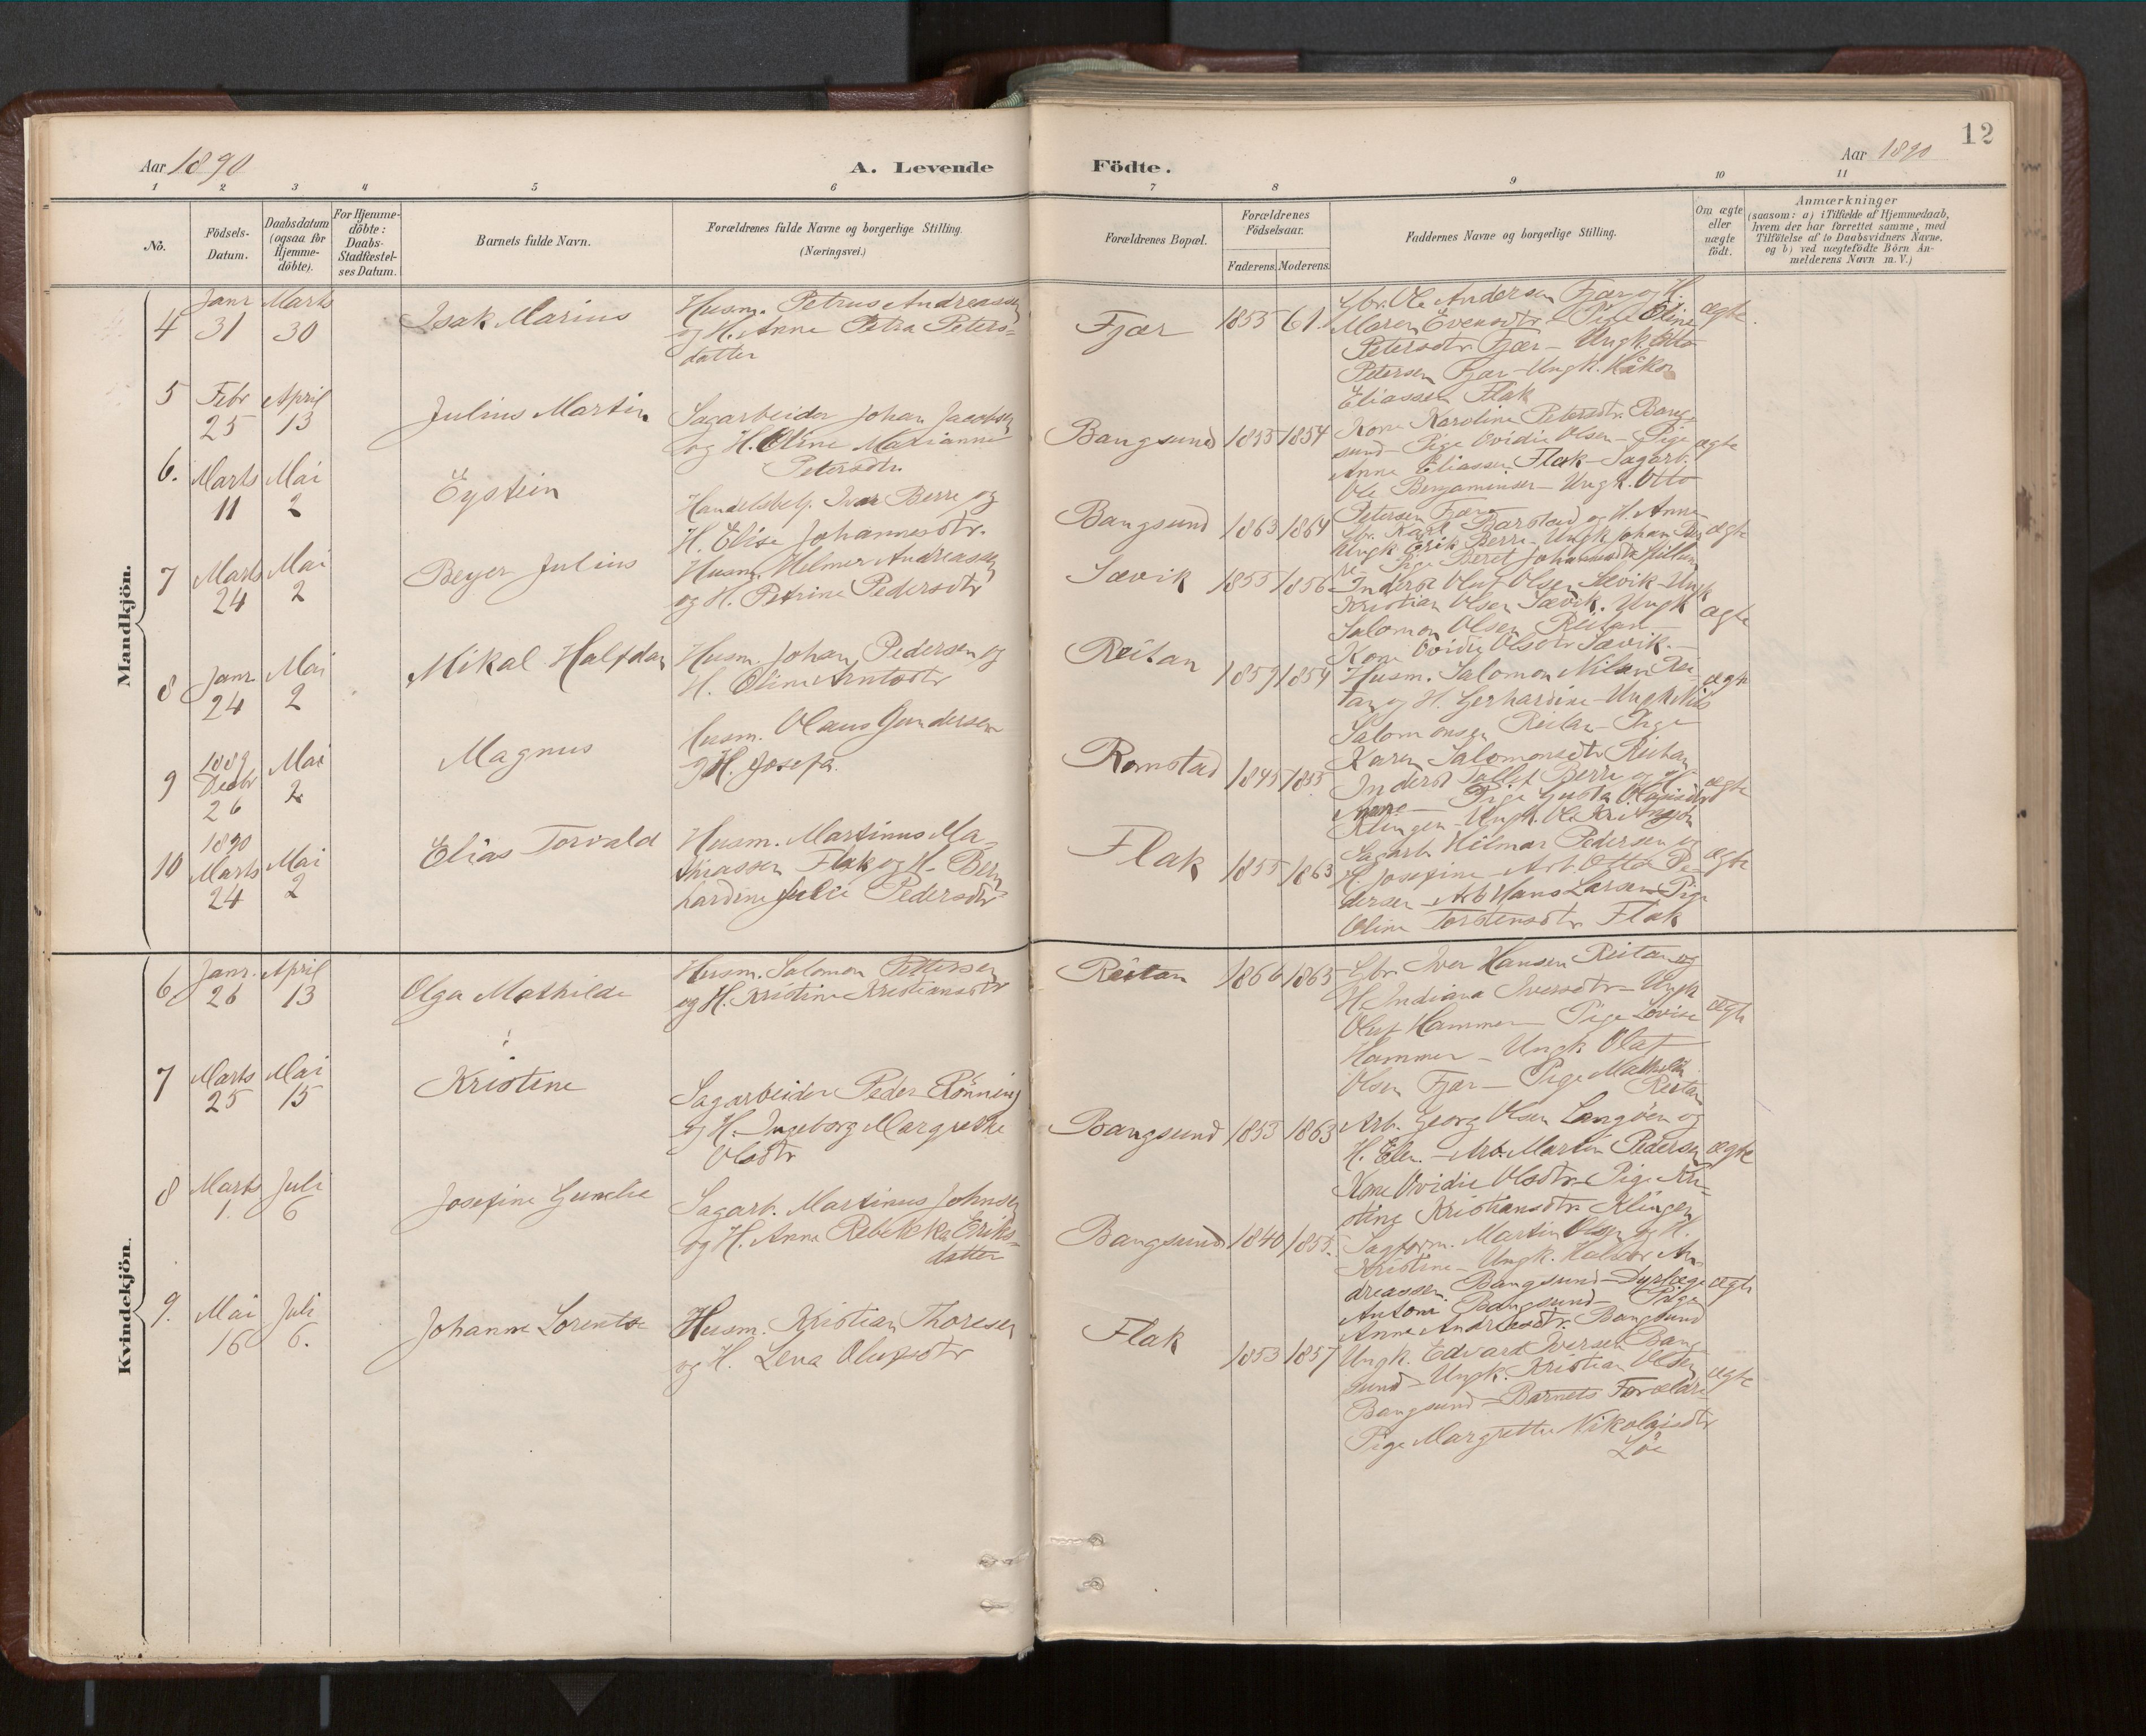 12
Aar 1890
A. Levende
Födte.
Aar 1890
1 2 3 4 5 6 7 8 9 10 11
No.
Födsels-
Datum.
Daabsdatum
(ogsaa for
Hjemme-
döbte).
For Hjemme-
döbte:
Daabs-
Stadfæstel-
ses Datum.
Barnets fulde Navn.
Forældrenes fulde Navne og borgerlige Stilling.
(Næringsvei.)
Forældrenes Bopæl.
Forældrenes
Födselsaar.
Faderens. Moderens.
Faddernes Navne og borgerlige Stilling.
Om ægte
eller
uægte
födt.
Anmærkninger
(saasom: a) i Tilfælde af Hjemmedaab,
hvem der har forrettet samme, med
Tilföielse af to Daabsvidners Navne,
og b) ved uægtefödte Börn An-
melderens Navn m. V.)
Mandkjön.
4
Janr
31
Marts
30
Isak Marius
Husm. Petrus Andreassen
og H. Anne Petra Peters-
datter
Fjær
1855 61.
Gbr. Ole Andersen Fjær og H.
Maren Evensdtr - Pige Eline
Petersdtr Fjær - Ungk. Otto
Petersen Fjær - Ungk. Håkon
Eliassen Flak
ægte.
5
Febr
25
April
13
Julius Martin
Sagarbeider Johan Jacobsen
og H. Oline Marianne
Petersdtr.
Bangsund
1855 1854
Kone Karoline Petersdtr. Bang-
sund - Pige Ovidie Olsen - Pige
Anne Eliassen Flak - Sagarb.
Ole Benjaminsen - Ungk. Otto
Petersen Fjær
ægte
6.
Marts
11
Mai
2
Eystein
Handelsbetj. Ivar Berre og
H. Elise Johannesdtr.
Bangsund
1863 1864
Gbr. Karl Barstad og H. Anne
Ungk Erik Berre - Ungk Johan Ber
re - Pige Beret
ægte
7
Marts
24
Mai
2
Beyer Julius
Husm. Helmer Andreassen
og H. Petrine Pedersdtr
Sævik
1855 1856
Inderst Oluf Olsen Sævik - Ungk
Kristian Olsen Sævik. Ungk
Salomon Olsen Reitan -
Kone Ovidie Olsdtr Sævik. -
ægte
8
Janr.
24
Mai
2
Mikal Halfdan
Husm. Johan Pedersen og
H. Oline Arntsdtr
Reitan
1859 1854
Husm. Salomon Nilsen Rei
tan og H. Gerhardine - Ungk Nils
Salomonsen Reitan - Pige
Karen Salomonsdtr Reitan
ægte
9
1889
Decbr
26
Mai
2
Magnus
Husm. Olaus Gundersen
og H. Josefa.
Romstad
1845 1855
Inderst Tollef Berre og H.
Anne - Pige Gusta Olausdtr
Klingen - Ungk. Ole
ægte
10
1890
Marts
24
Mai
2
Elias Torvald
Husm. Martinus Ma-
thiassen Flak og H. Bern
hardine Julie Pedersdtr
Flak
1855 1863
Sagarb. Hilmar Pedersen og
H. Josefine - Arb. Otto Pe-
dersen - Arb Hans Larsen - Pige
Oline Torstensdtr Flak
ægte
Kvindekjön.
6
Janr.
26
April
13
Olga Mathilde
Husm. Salomon Pettersen
og H. Kristine Kristiansdtr
Reitan
1866 1865
Gbr. Iver Hansen Reitan og
H. Indiana Iversdtr - Ungk
Oluf Hammer - Pige Lovise
Hammer - Ungk Olaf
Olsen Fjær - Pige Mathilde
Reitan
ægte
7
Marts
25
Mai
15
Kristine
Sagarbeider Peder Rönning
og H. Ingeborg Margrethe
Olsdtr
Bangsund
1853 1863
Arb. Georg Olsen Langöen og
H. Elen. - Arb. Martin Pedersen
Kone Ovidie Olsdtr - Pige Kri-
stine Kristiansdtr. Klingen
ægte
8
Marts
1.
Juli
6
Josefine Gunelie
Sagarb. Martinus Johnsen
og H. Anna Rebekka Eriks-
datter
Bangsund
1840 1855.
Sagform. Martin Olsen og H.
Kristine - Ungk. Halvor An
dreassen Bangsund - Dyrlæge
Antoni Bangsund - Pige
Anne Andreasdtr. Bangsund
ægte
9.
Mai
16
Juli
6.
Johanne Lorentse
Husm. Kristian Thoresen
og H. Lena Olufsdtr
Flak
1853 1857
Ungk. Edvard Iversen Bang-
sund - Ungk. Kristian Olsen
Bangsund - Barnets Forældre
Pige Margrethe Nikolaisdtr
Löe
ægte